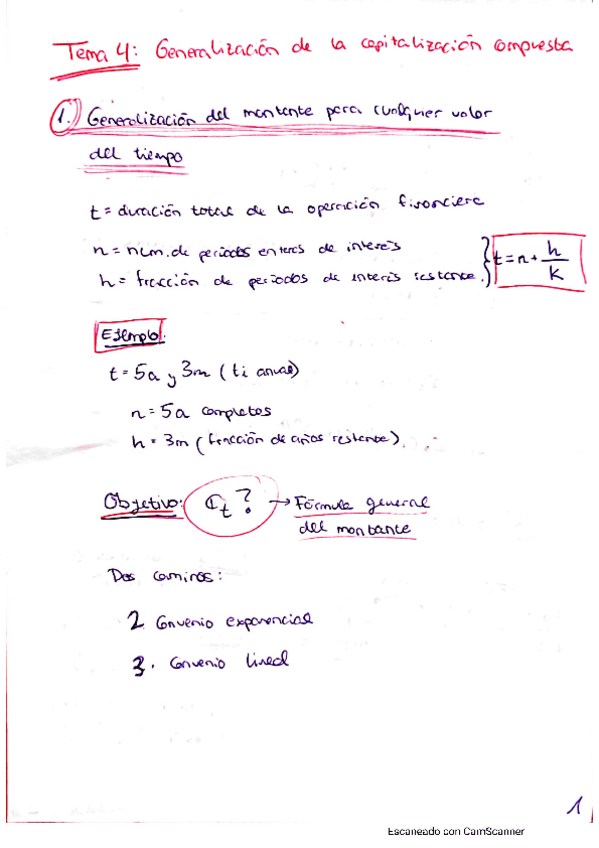 Tema 4: Generalización de la capitalización compuesta
1. Generalización del montante para cualquier valor
del tiempo
t = duración total de la operación financiera
n = núm. de periodos enteros de interés
h = fracción de periodos de interés restante.
t = n + h/k
Ejemplo.
t = 5a y 3m (ti anual)
n = 5a completos
h = 3m (fracción de años restante).
Objetivo: Ct? → Fórmula general
del montante
Dos caminos:
2. Convenio exponencial
3. Convenio lineal
1
Escaneado con CamScanner